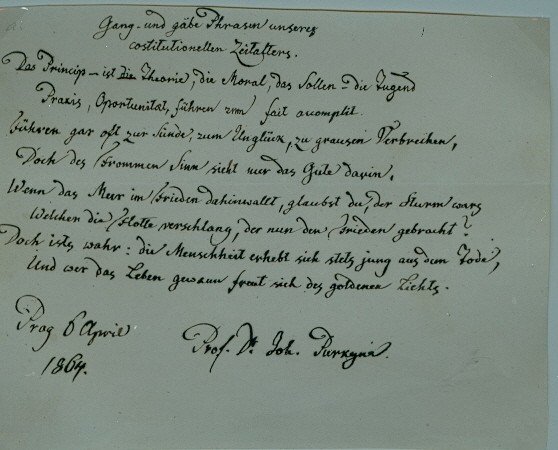 Gang- und gäbe Phrasen unseres
costitutionellen Zeitalters.
Das Princip – ist die Theorie, die Moral, das Sollen – die Tugend
Praxis, Oportunität, führen zum fait acomplit.
Führen gar oft zur Sünde, zum Unglück, zu grausen Verbrechen,
Doch des Frommen Sinn sieht nur das Gute darin,
Wenn das Meer im Frieden dahinwallt, glaubst du, der Sturm wars
Welcher die Flotte verschlang, der nun den Frieden gebracht?
Doch ists wahr: die Menschheit erhebt sich stets jung aus dem Tode,
Und wer das Leben gewann freut sich des goldenen Lichts.
Prag 6 April
1864.
Prof. Dr Joh. Purkyně.